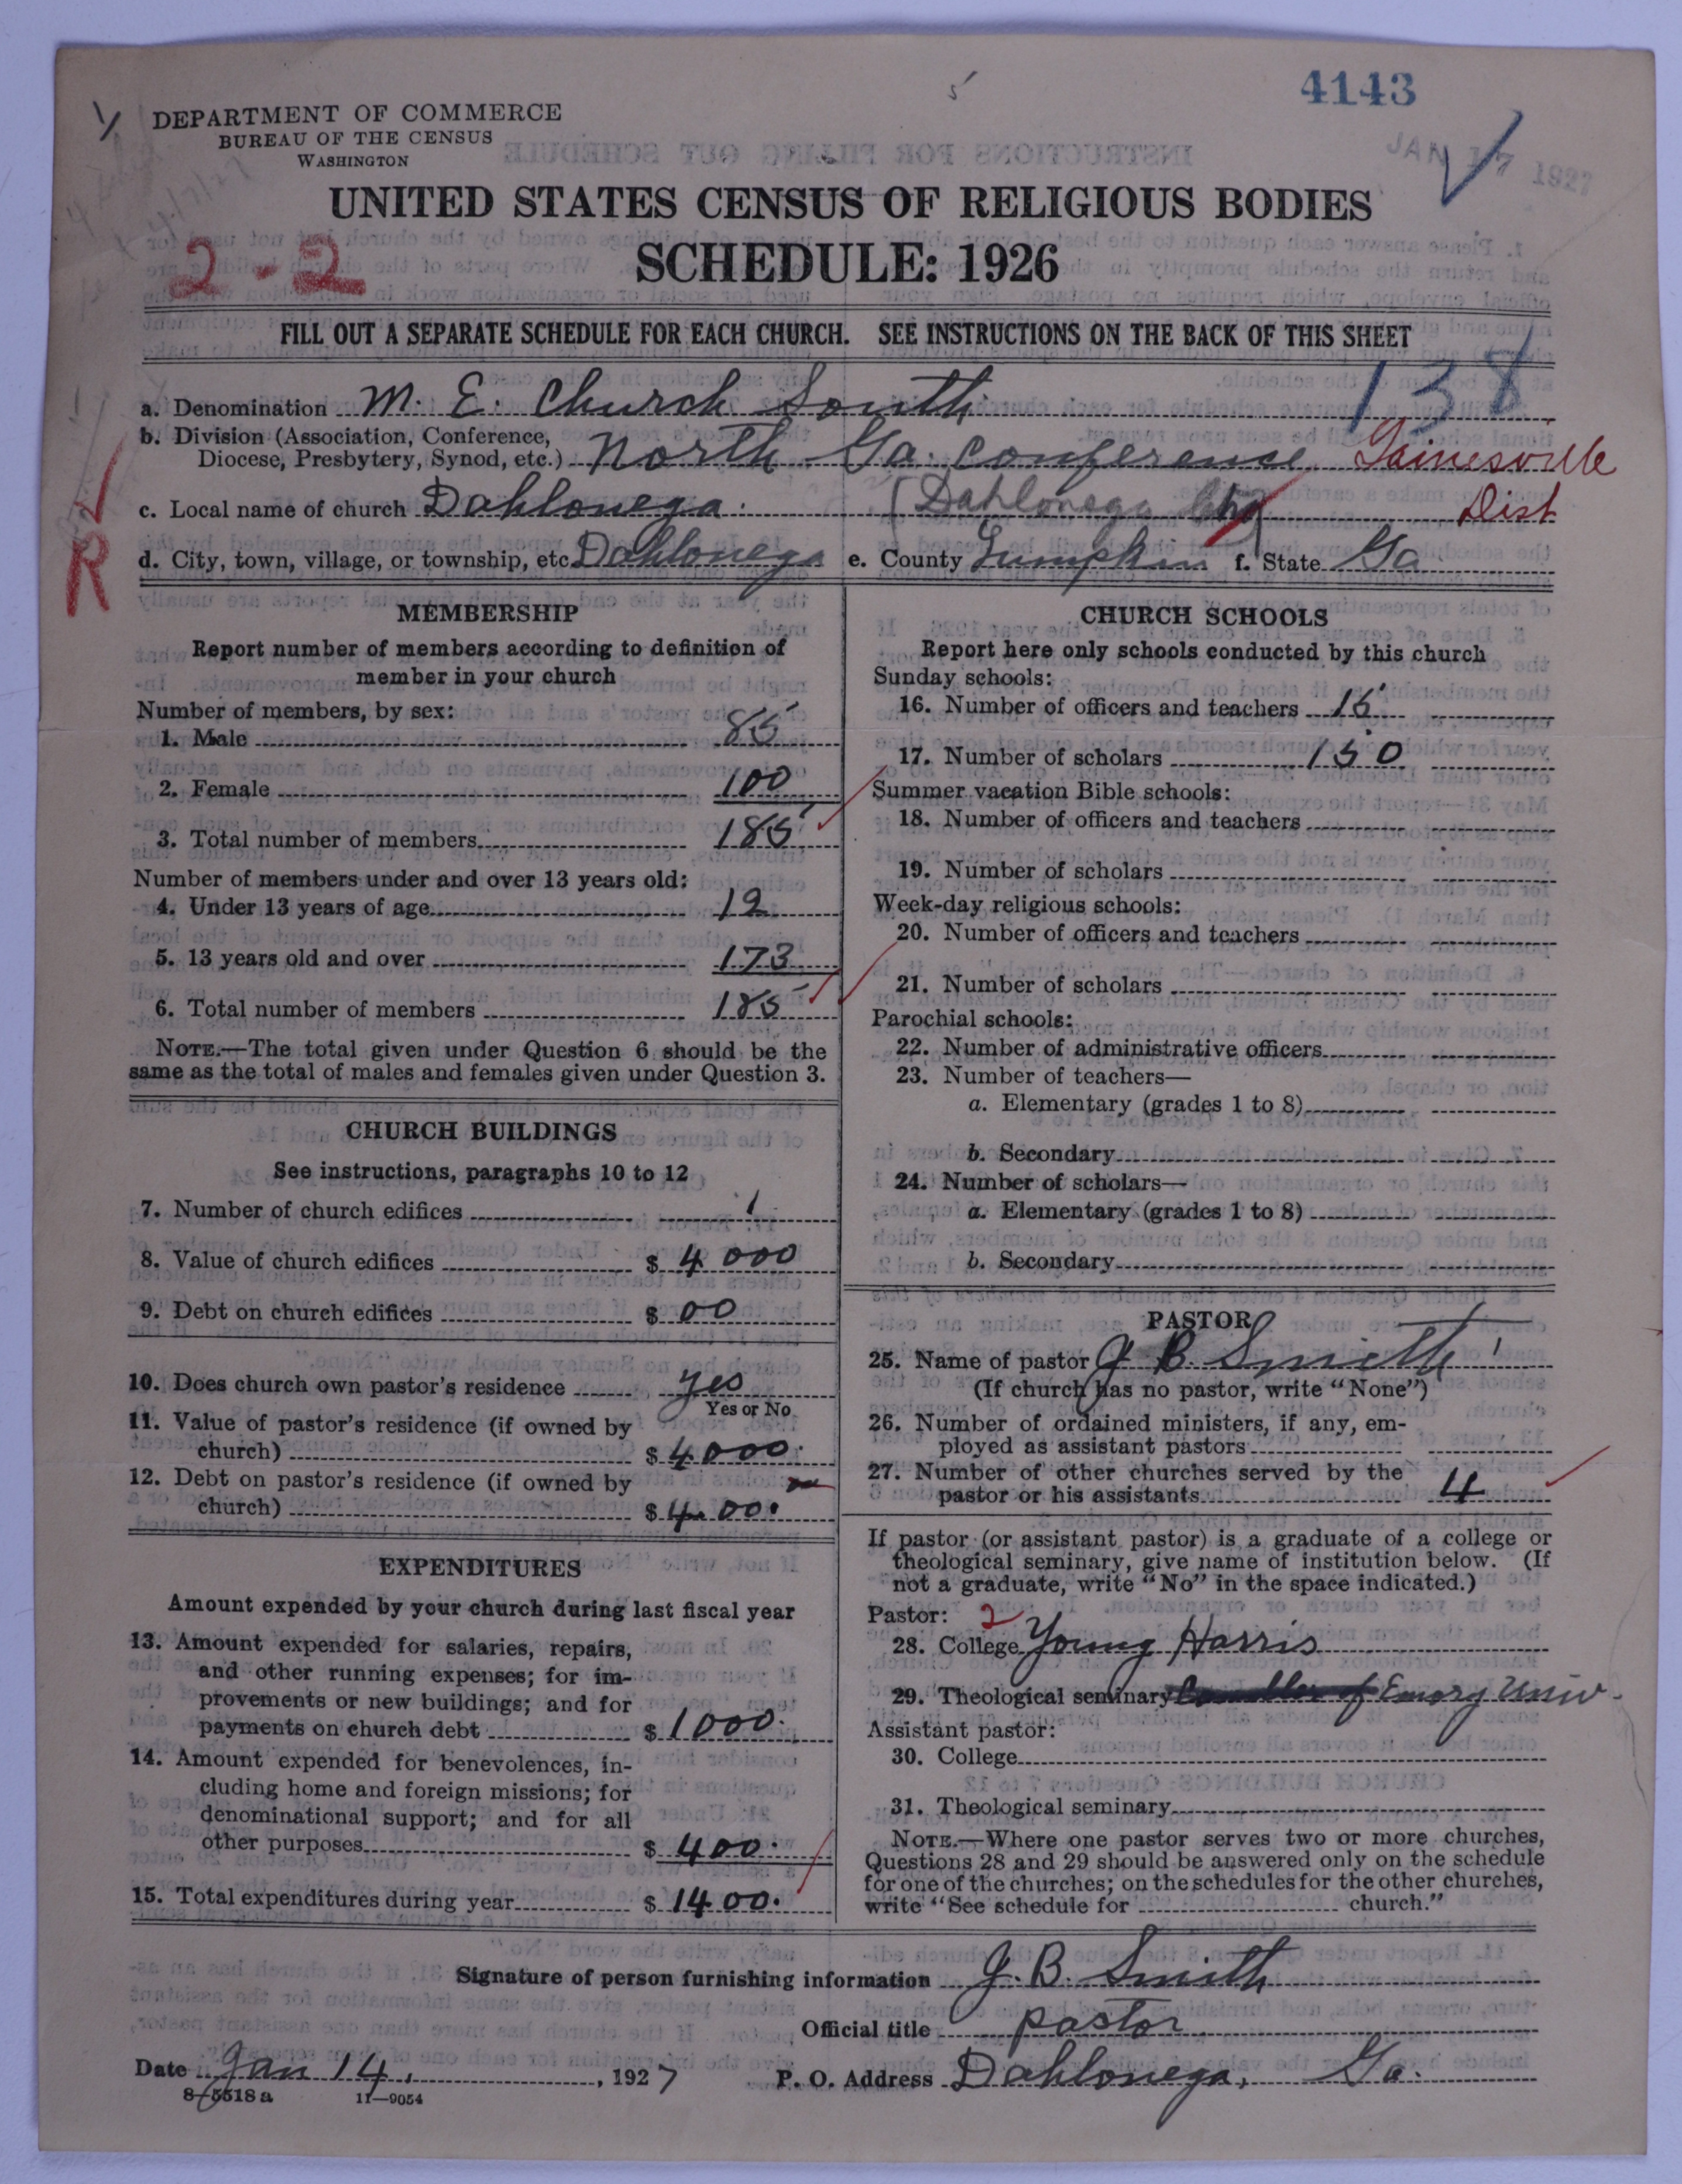 4143
DEPARTMENT OF COMMERCE
BUREAU OF THE CENSUS
WASHINGTON
JAN 17 1927
UNITED STATES CENSUS OF RELIGIOUS BODIES
2-2
SCHEDULE: 1926
FILL OUT A SEPARATE SCHEDULE FOR EACH CHURCH. SEE INSTRUCTIONS ON THE BACK OF THIS SHEET
138
a. Denomination M. E. Church South
b. Division (Association, Conference,
Diocese, Presbytery, Synod, etc.) North Ga. Conference Gainesville
c. Local name of church Dahlonega. (Dahlonega Dist
R
d. City, town, village, or township, etc. Dahlonega e. County Lumpkin f. State Ga
MEMBERSHIP
Report number of members according to definition of
member in your church
Number of members, by sex:
1. Male 85
2. Female 100
3. Total number of members 185
Number of members under and over 13 years old:
4. Under 13 years of age 12
5. 13 years old and over 173
6. Total number of members 185
NOTE.—The total given under Question 6 should be the
same as the total of males and females given under Question 3.
CHURCH BUILDINGS
See instructions, paragraphs 10 to 12
7. Number of church edifices 1
8. Value of church edifices $ 4000
9. Debt on church edifices $ 00
10. Does church own pastor's residence yes
Yes or No
11. Value of pastor's residence (if owned by
church) $ 4000.
12. Debt on pastor's residence (if owned by
church) $ 400.
EXPENDITURES
Amount expended by your church during last fiscal year
13. Amount expended for salaries, repairs,
and other running expenses; for im-
provements or new buildings; and for
payments on church debt $ 1000.
14. Amount expended for benevolences, in-
cluding home and foreign missions; for
denominational support; and for all
other purposes $ 400.
15. Total expenditures during year $ 1400.
CHURCH SCHOOLS
Report here only schools conducted by this church
Sunday schools:
16. Number of officers and teachers 15
17. Number of scholars 150
Summer vacation Bible schools:
18. Number of officers and teachers
19. Number of scholars
Week-day religious schools:
20. Number of officers and teachers
21. Number of scholars
Parochial schools:
22. Number of administrative officers
23. Number of teachers—
a. Elementary (grades 1 to 8)
b. Secondary
24. Number of scholars—
a. Elementary (grades 1 to 8)
b. Secondary
PASTOR
25. Name of pastor J B. Smith
(If church has no pastor, write "None")
26. Number of ordained ministers, if any, em-
ployed as assistant pastors
27. Number of other churches served by the
pastor or his assistants 4
If pastor (or assistant pastor) is a graduate of a college or
theological seminary, give name of institution below. (If
not a graduate, write "No" in the space indicated.)
Pastor: 2
28. College Young Harris
29. Theological seminary Emory Univ.
Assistant pastor:
30. College
31. Theological seminary
NOTE.—Where one pastor serves two or more churches,
Questions 28 and 29 should be answered only on the schedule
for one of the churches; on the schedules for the other churches,
write "See schedule for church."
Signature of person furnishing information J. B. Smith
Official title pastor
Date Jan 14, 1927 P. O. Address Dahlonega, Ga.
8-5518a 11—9054